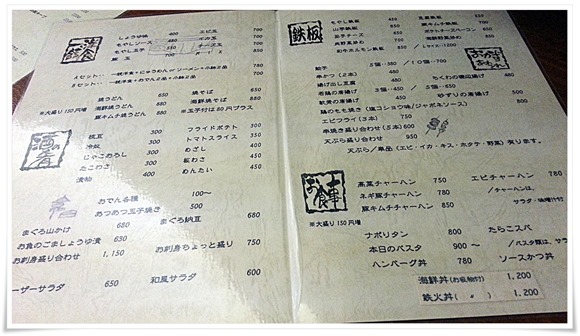 しょうゆ味 400
もやしソース 480
もやし玉子 550
豚玉 700
エビ玉 700
イカ玉 700
チーズ玉 700
Aセット・・・一銭洋食・にゅうめんorソーメン・小鉢2品
Bセット・・・一銭洋食・おでん2品・小鉢2品
焼うどん 650
海鮮焼うどん 880
豚キムチ焼うどん 880
焼そば 650
海鮮焼そば 880
※大盛り150円増
※玉子付は80円プラス
酒の肴
枝豆 300
冷奴 300
じゃこおろし 300
たこわさ 350
漬物 400
フライドポテト 300
トマトスライス 350
めざし 400
板わさ 450
めんたい 450
おでん各種 100〜
あつあつ玉子焼き 500
まぐろ山かけ 680
お魚のごましょうゆ漬 630
お刺身盛り合わせ 1,150
まぐろ納豆 680
お刺身ちょっと盛り 750
ーザーサラダ 650
和風サラダ 600
鉄板
もやし鉄板 450
山芋鉄板
餃子チーズ
和牛ホルモン鉄板 850 / Lサイズ 1200
豆腐鉄板
豚キムチ鉄板 700
ポテトチーズベーコン
海鮮野菜炒め
餃子 5個・350 / 10個・700
串かつ(2本) 480
揚げ出し豆腐
若鶏の唐揚げ 3個・390 / 5個・650
軟骨の唐揚げ 450
ちくわの磯辺揚げ 480
ゆずりの唐揚げ 500
鶏のもも焼き(塩コショウ味/ジャポネソース) 800
エビフライ(3本) 600
串焼き盛り合わせ(5本) 600
天ぷら盛り合わせ 950
天ぷら/単品(エビ・イカ・キス・ホタテ・野菜)有ります。
お食事
高菜チャーハン 750
ネギ豚チャーハン 780
豚キムチチャーハン 850
エビチャーハン 780
/チャーハンは、
サラダ・味噌汁付
※大盛り150円増
ナポリタン 800
本日のパスタ 900〜
ハンバーグ丼 780
たらこスパ
/パスタ類は、サラダ
ソースかつ丼
海鮮丼(お吸物付) 1,200
鉄火丼( 〃 ) 1,200